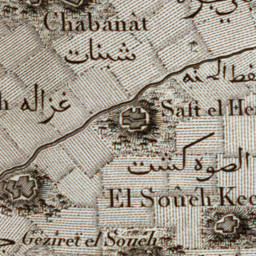 Chabanât
شبنات
غزاله
Saft el He
الصوه كشت
El Soûeh Kec
Gezireţ el Soueh